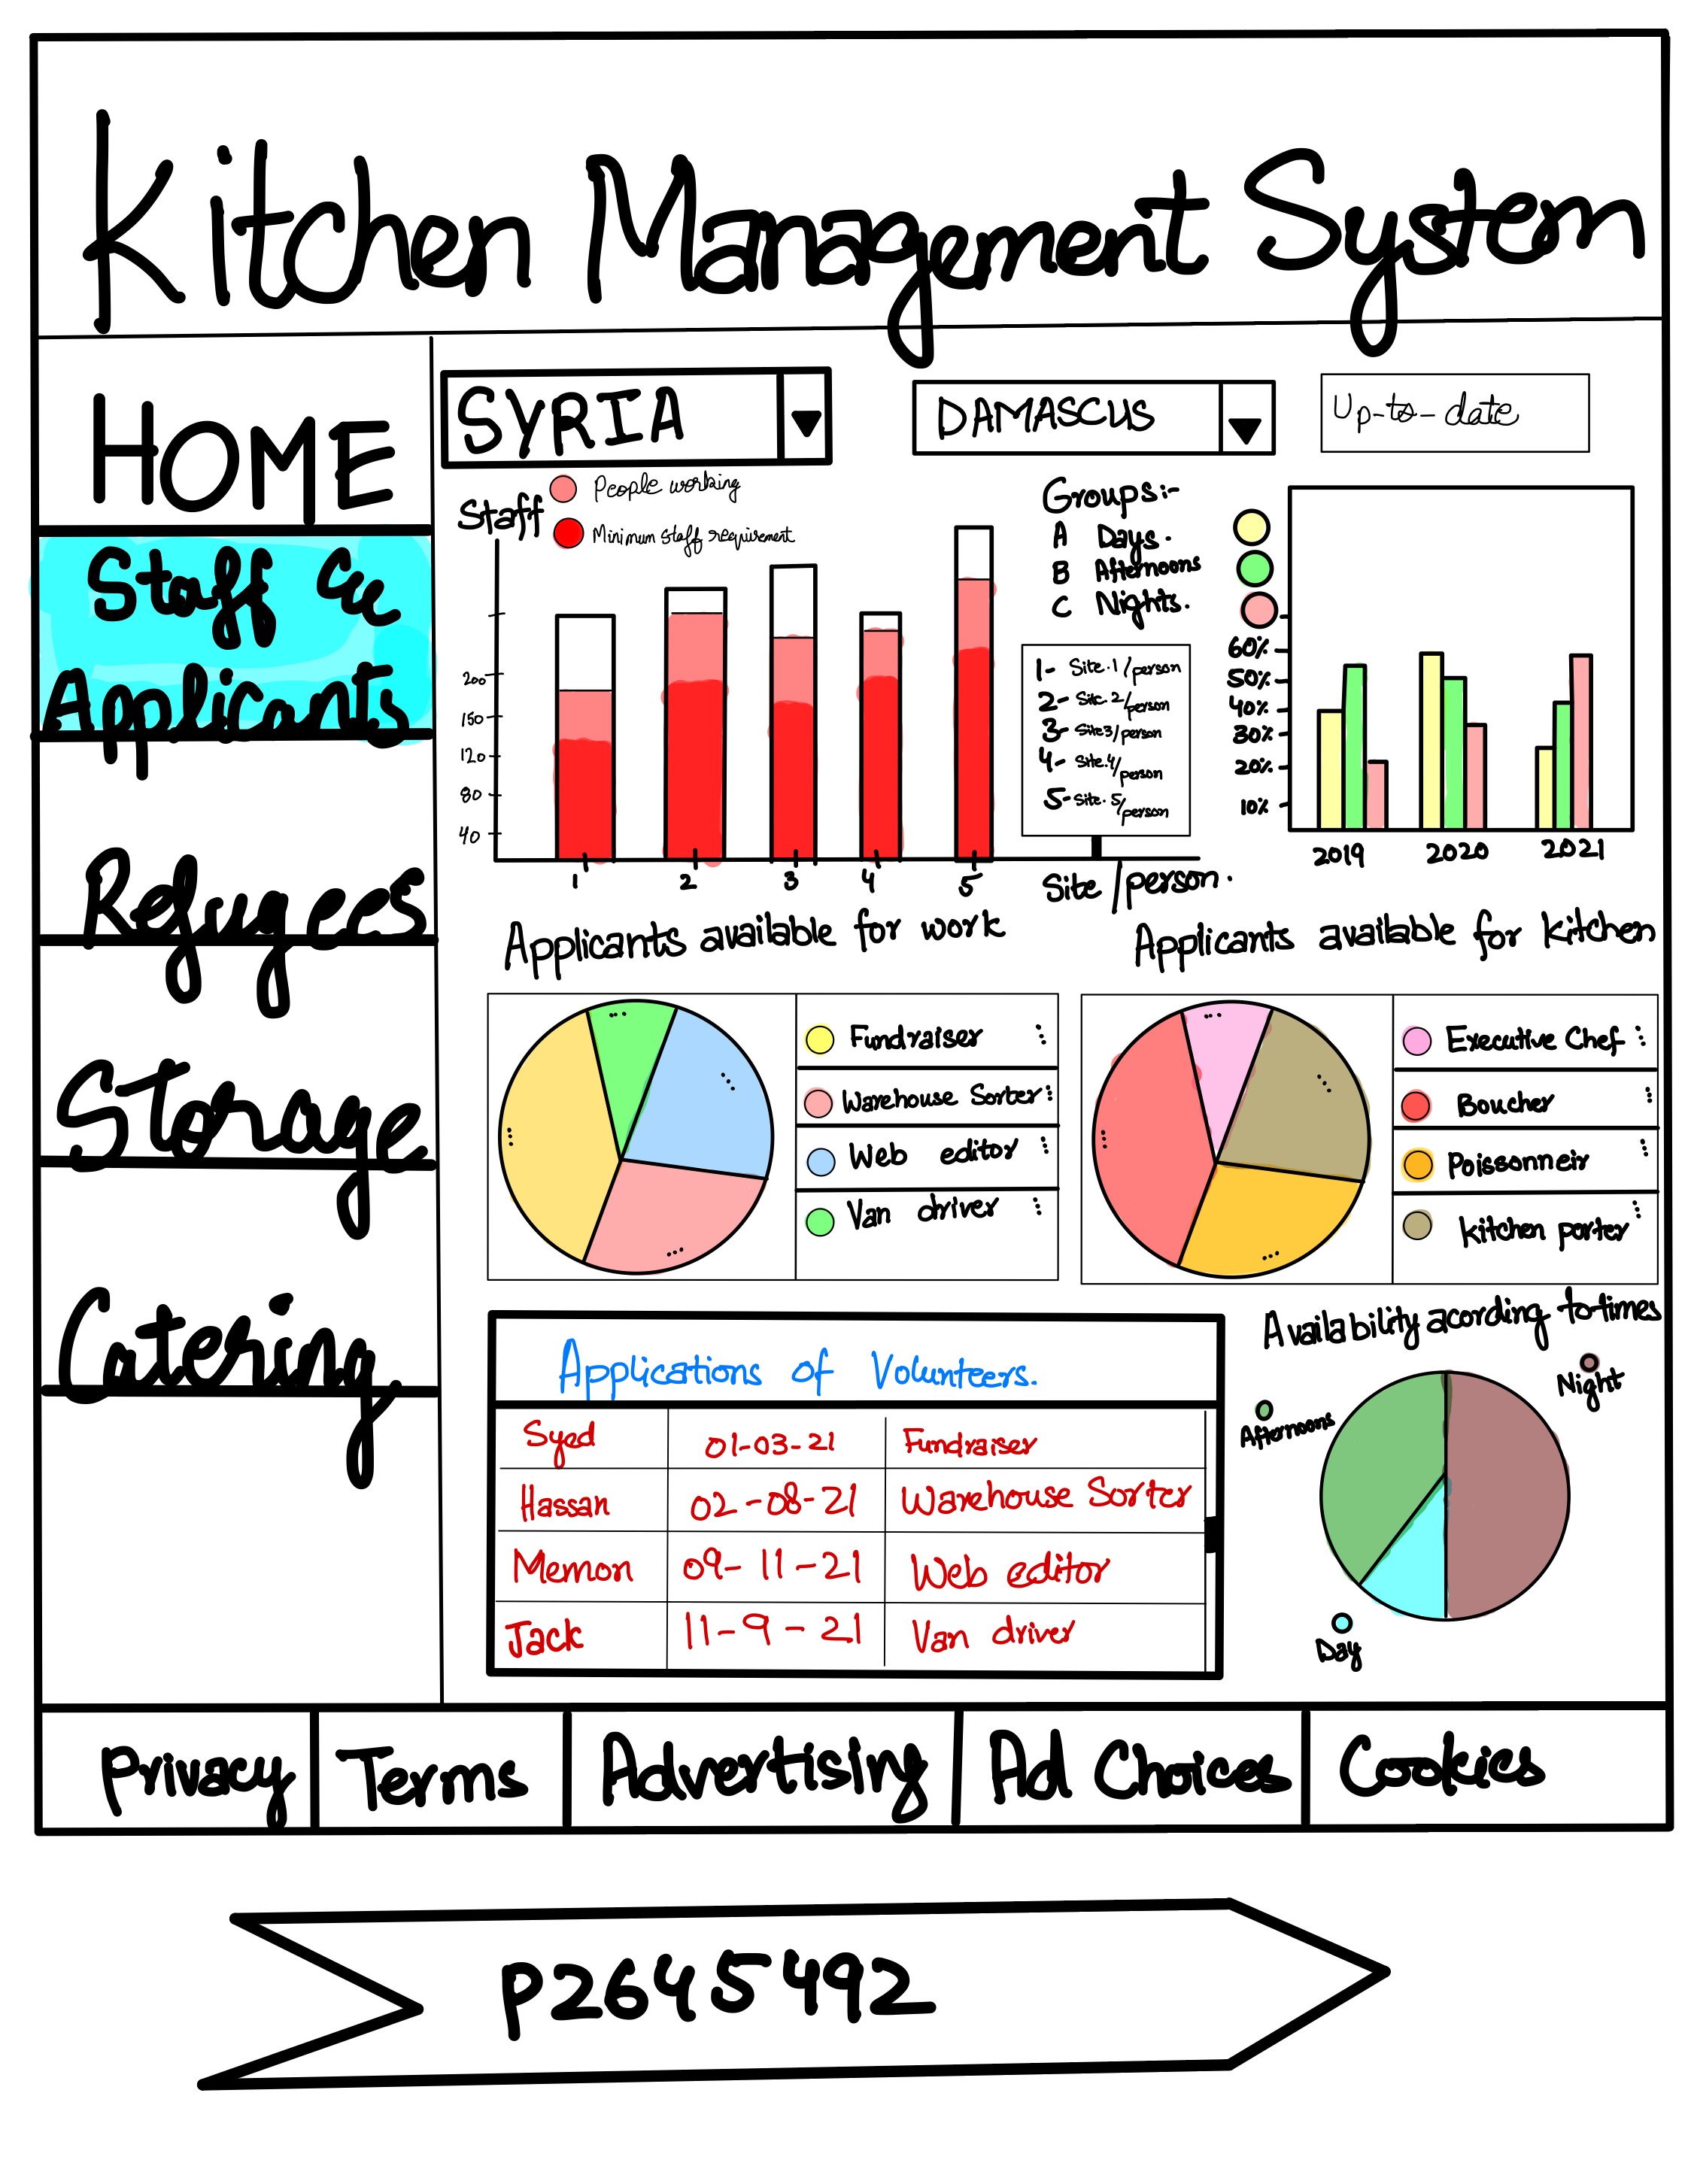 Kitchen Management System
HOME
Staff &
Applicants
Refugees
Storage
Catering
SYRIA
DAMASCUS
Up-to-date
Staff
People working
Minimum staff requirement
200
150
120
80
40
1
2
3
4
5
Site/person.
Groups:-
A Days.
B Afternoons
C Nights.
1- Site.1/person
2- Site.2/person
3- Site3/person
4- Site.4/person
5- Site.5/person
60%
50%
40%
30%
20%
10%
2019
2020
2021
Applicants available for work
Fundraiser
Warehouse Sorter
Web editor
Van driver
Applicants available for kitchen
Executive Chef
Boucher
Poissonneir
kitchen porter
Applications of Volunteers.
Syed 01-03-21 Fundraiser
Hassan 02-08-21 Warehouse Sorter
Memon 09-11-21 Web editor
Jack 11-9-21 Van driver
Availability acording to times
Night
Afternoons
Day
Privacy
Terms
Advertising
Ad Choices
Cookies
P2645492